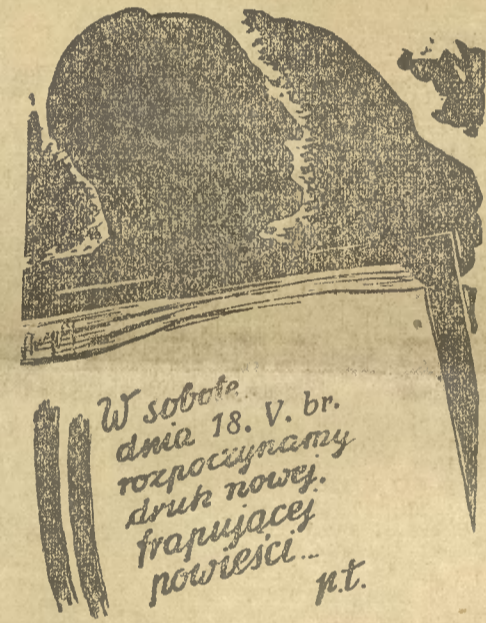 W sobotę
dnia 18. V. br.
rozpoczynamy
druk nowej,
frapującej
powieści...
p.t.